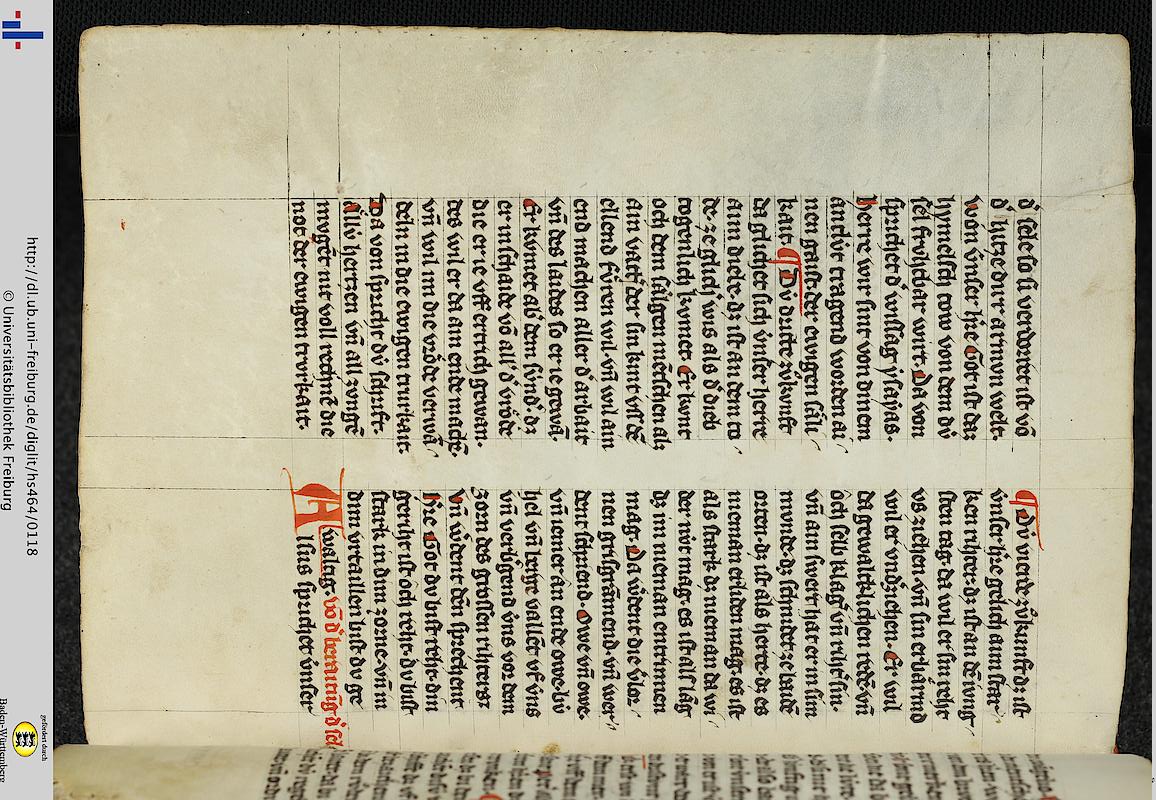 http://dl.ub.uni-freiburg.de/diglit/hs464/0118
© Universitätsbibliothek Freiburg
gefördert durch
Baden-Württemberg
d' sele so si verdorret ist vō
d' hitze dirr armvn welt·
won v̓nser h're Got ist daz
hymelsch tow von dem dv
sel frvhtbar wirt· Da von
sprichet d' wissag ysayas·
herre wir sint von dinem
antlvt tragend worden ai
nen gaist der ewigen säli
kait· ¶ Dv dritte zv̊kunft
da glichet sich vnser herre
aim diebe· dz ist an dem to
de· ze glich' wis als d' dieb
togenlich kvmet· Er kvnt
och dem sälgen mēschen als
ain vatt' der sin kint vss dē
ellend fůren wil· vn̄ wil ain
end machen aller d' arbait
vn̄ des laides so er ie gewā·
Er kvmet ab' dem sv̓nd'· dz
er in schaide vō all' d' vröde
die er ie vff ertrich gewan·
des wil er da ain ende machē·
vn̄ wil im die vröde verwā
deln in die ewigen trurkait·
Da von sprichet dv̓ schrift·
ällv̓ hertzen vn̄ all zvngē
mvgēt nit voll rechnē die
not der ewigen trvrkait·
¶ Dv vierde zv̊kunft dz ist
v̓nser h're gelich aim star
ken rihter· dz ist an dē ivng
sten tag· da wil er sin reht
vs ziehen· vn̄ sin erbärmd
wil er vnd'ziehen· Er wil
da gewaltklichen redē vn̄
och selb klag' vn̄ riht' sin·
vn̄ ain swert hat er in sim
mvnde· dz schnidet ze baidē
orten dz ist als herte· dz es
nieman erliden mag· es ist
als stark dz nieman da wi
der nit mag· es ist alss läg
dz im nieman entrinnen
mag· Da w'dent die vlor
nen grisgrāmend· vn̄ wer
dent schriend· Owe vn̄ owe·
vn̄ iemer an ende owe· biv
hel vn̄ berge vallēt vf vns
vn̄ verbergend vns vor dem
zorn des grossen rihterz·
Vn̄ w'dent den sprechent
h're Got dv bist reht· din
geriht ist och reht· dv bist
stark in dim zorne· vn̄ in
dim vrtaillen bist dv ge
waltig· vō d' beraitūg d' sel
Alsus sprichet vnser